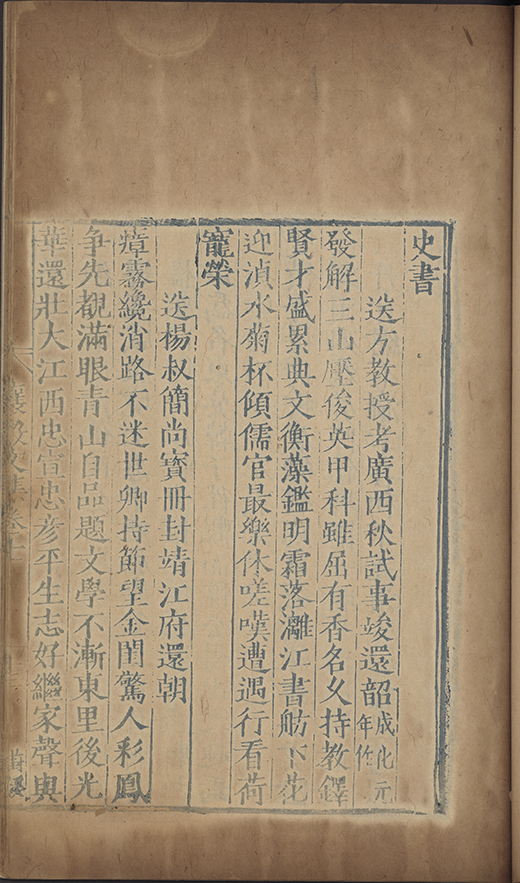 史書
送方教授考廣西秋試事竣還韶成化元年作
發解三山壓俊英甲科雖屈有香名久持教鐸
賢才盛累典文衡藻鑑明霜落灕江書舫下花
迎湞水菊杯傾儒官最樂休嗟嘆遭遇行看荷
寵榮
送楊叔簡尚寶冊封靖江府還朝
瘴霧纔消路不迷世卿持節望金閨驚人彩鳳
爭先覩滿眼青山自品題文學不漸東里後光
華還壯大江西忠宣忠彥平生志好繼家聲與
襄毅文集卷十